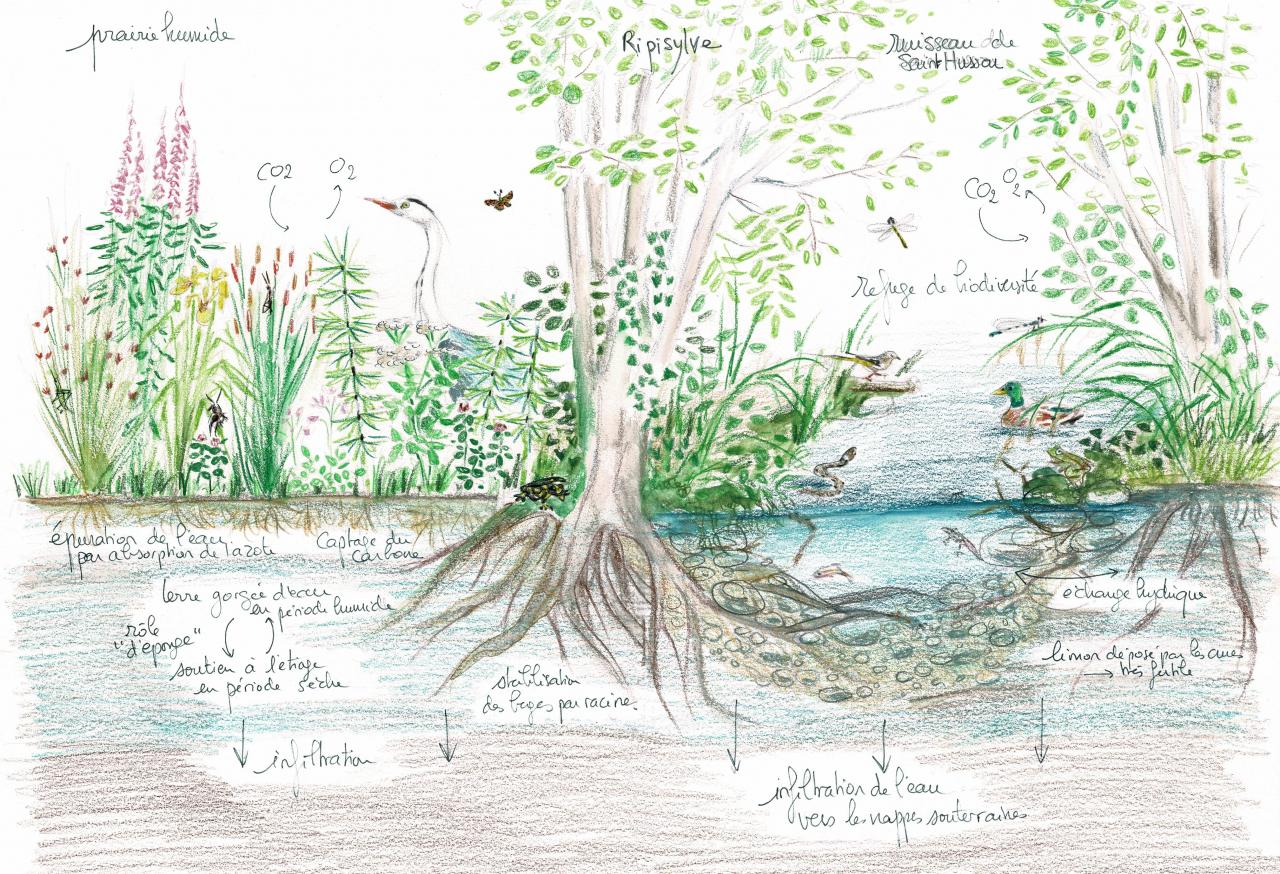 prairie humide
Ripisylve
ruisseau de
Saint Husson
CO2
O2
CO2
O2
refuge de biodiversité
épuration de l'eau
par absorption de l'azote
Captage du
Carbone
terre gorgée d'eau
en période humide
rôle
"d'éponge"
soutien à l'étiage
en période sèche
stabilisation
des berges par racines
échange hydrique
limon déposé par les crues
→ très fertile
infiltration
infiltration de l'eau
vers les nappes souterraines